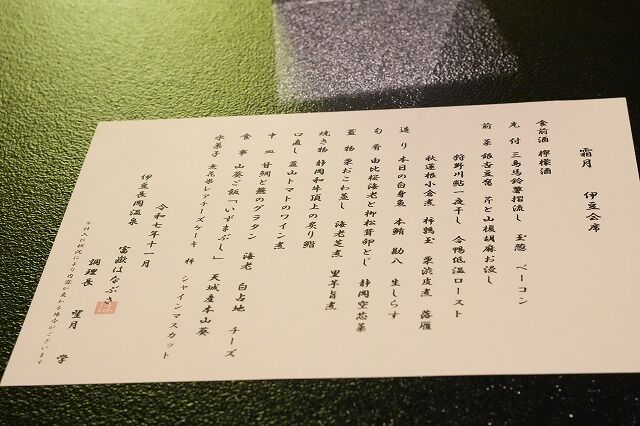 霜月　伊豆会席
食前酒 檸檬酒
先付 三島馬鈴薯摺流し 玉葱 ベーコン
前菜 銀杏豆腐 芹と山榎胡麻お浸し
狩野川鮎一夜干し 合鴨低温ロースト
秋蓮根小倉煮 柿鶉玉 栗渋皮煮 落雁
造り 本日の白身魚 本鮪 勘八 生しらす
旬肴 由比桜海老と柳松茸卵とじ 静岡空芯菜
蓋物 栗おこわ蒸し 海老芝煮 里芋旨煮
焼き物 静岡和牛頂上の炙り鮨
口直し 韮山トマトのワイン煮
中皿 甘鯛と蕪のグラタン 海老 白占地 チーズ
食事 山葵ご飯「いずまぶし」 天城産本山葵
水菓子 レアチーズケーキ 柿 シャインマスカット
令和七年十一月
伊豆長岡温泉 富嶽はなぶさ
調理長 望月 学
※仕入れ状況により内容が変わる場合がございます